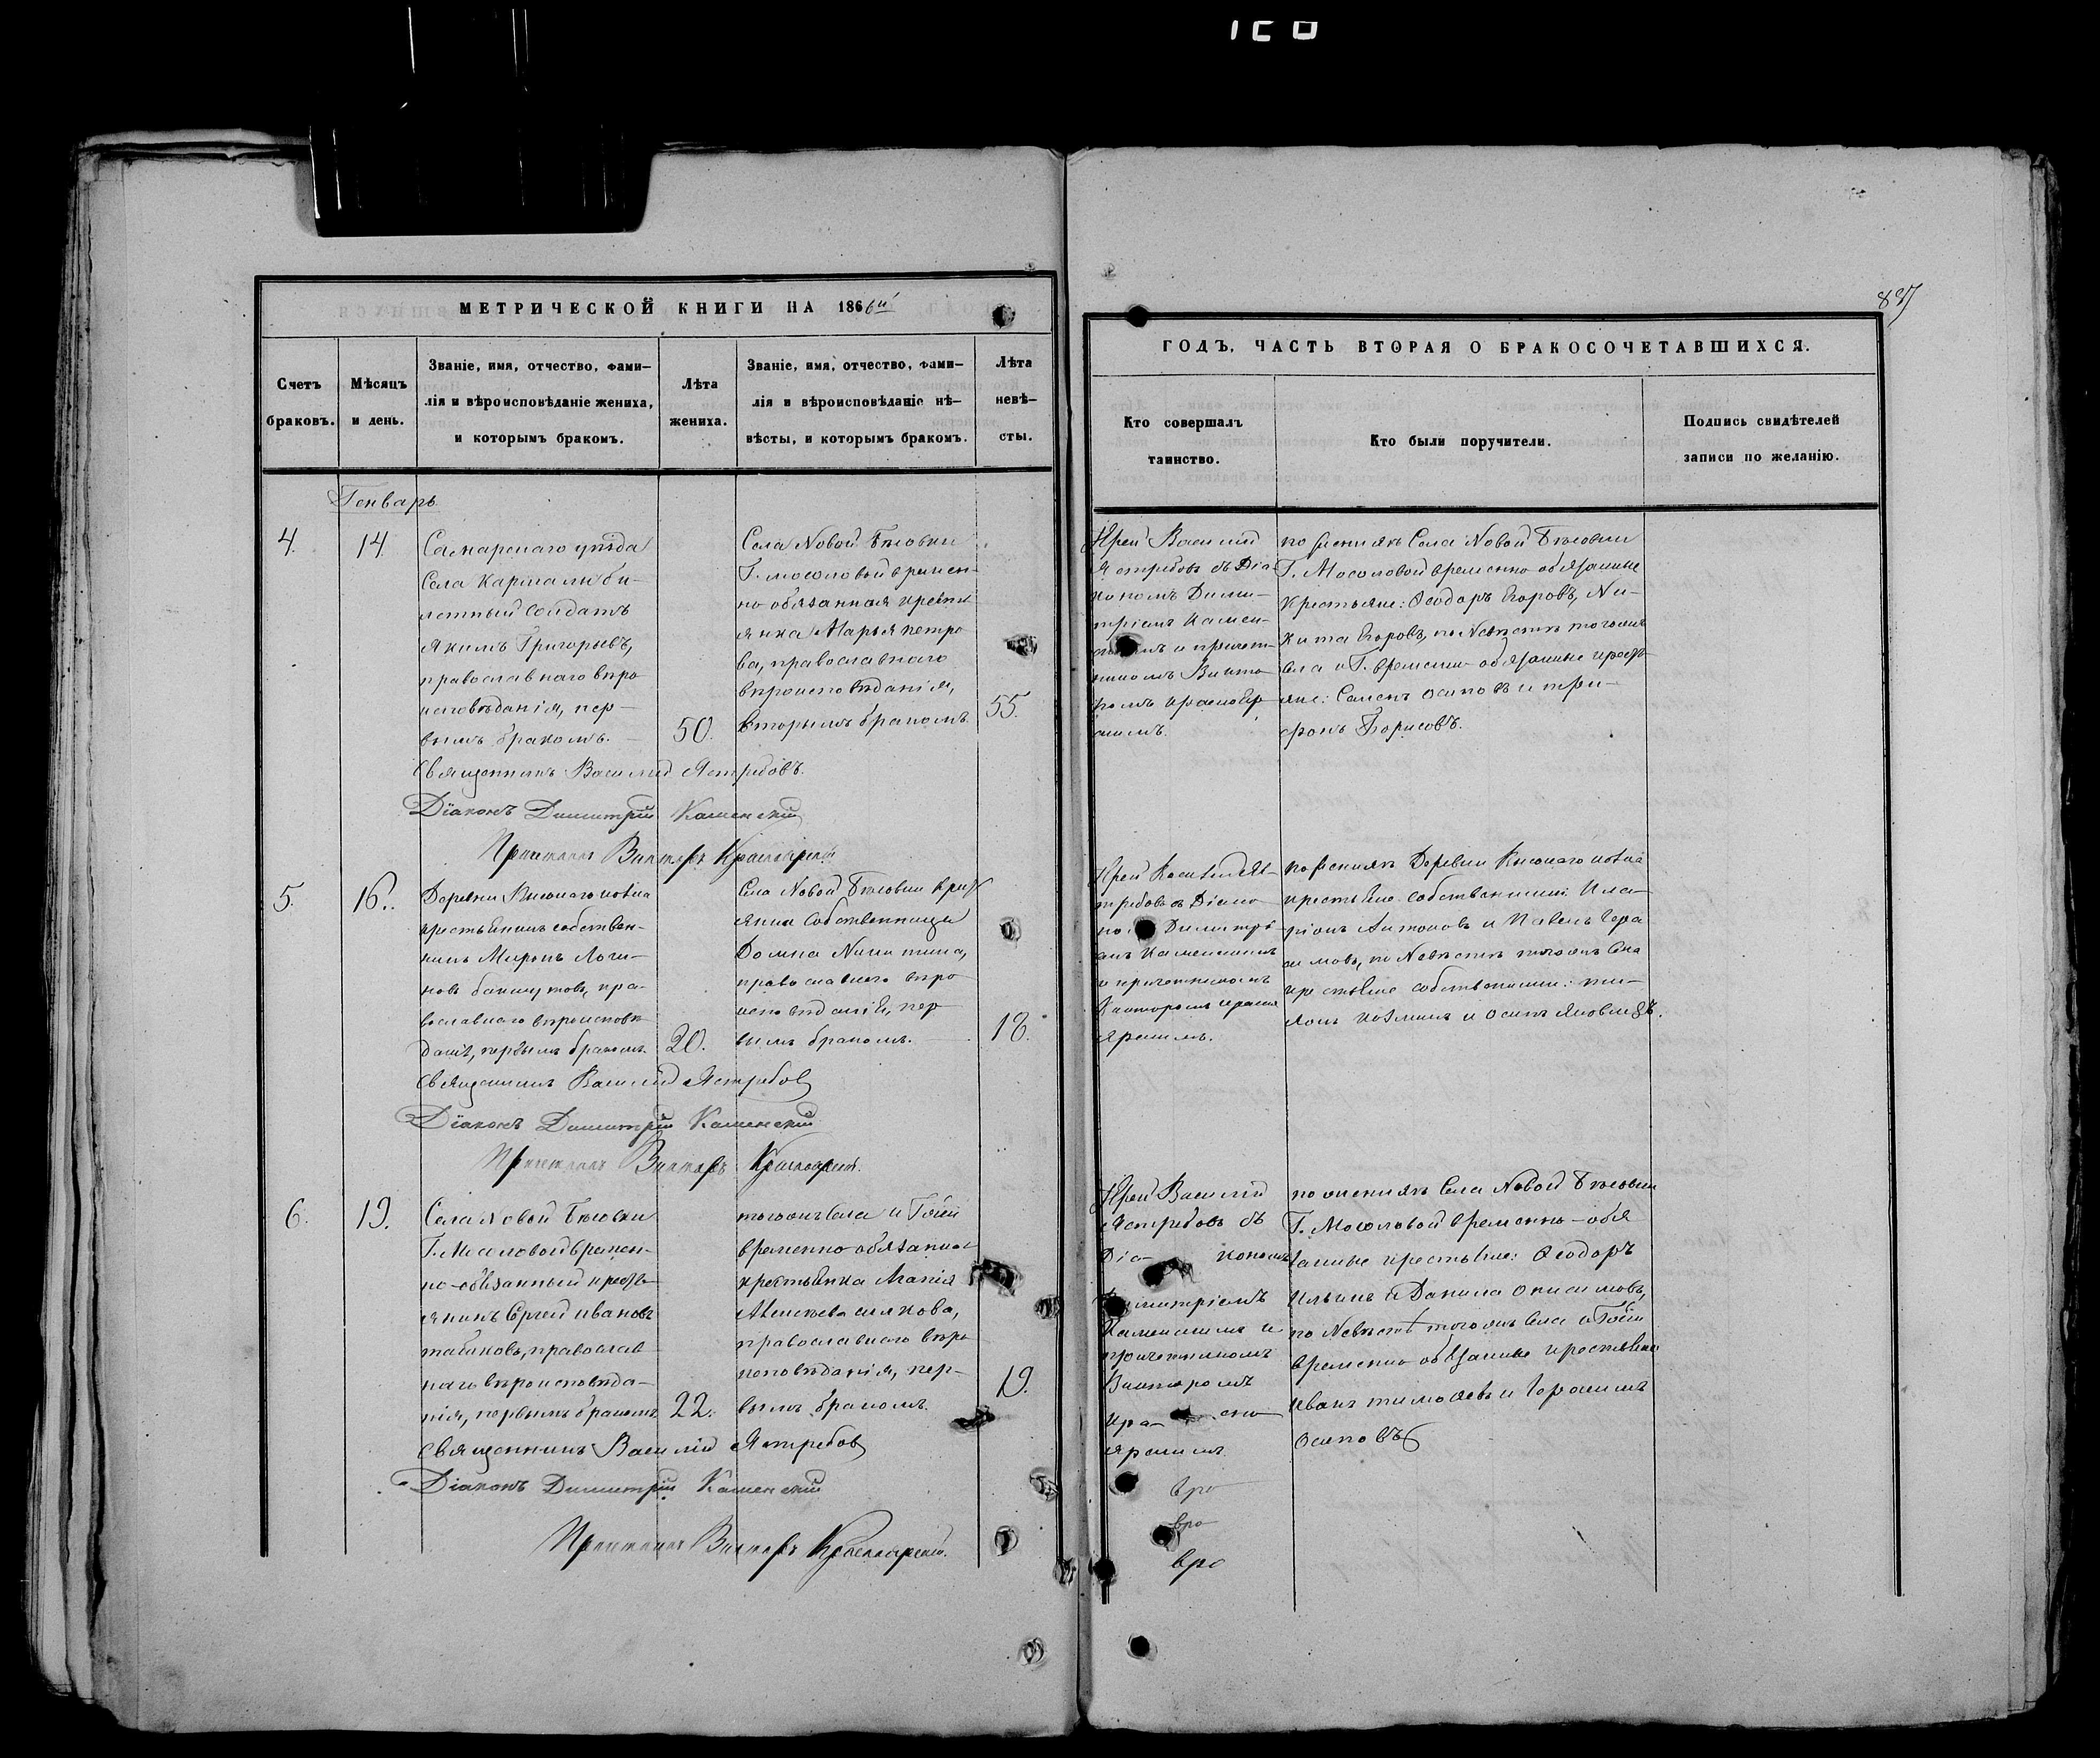 МЕТРИЧЕСКОЙ КНИГИ НА 1866й
Счетъ браковъ.
Мѣсяцъ и день.
Званіе, имя, отчество, фами-
лія и вѣроисповѣданіе жениха,
и которымъ бракомъ.
Лѣта
жениха.
Званіе, имя, отчество, фами-
лія и вѣроисповѣданіе нѣ-
вѣсты, и которымъ бракомъ.
Лѣта
невѣ-
сты.
Генварь
4.
14
Самарскаго уѣзда
Села Кармалы би-
летный Солдатъ
Якимъ Григорьевъ,
православнаго вѣро
исповѣданія, пер-
вымъ бракомъ.
50.
Села Новой Бѣговки
Г. Мосоловой времен-
но обязанная кресть
янка Марья Петро
ва, православнаго
вѣроисповѣданія,
вторымъ бракомъ
55.
Священникъ Василій Ястребовъ.
Діаконъ Димитрій Каменскій
Причетникъ Викторъ Красноярскій
5.
16.
Деревни
крестьянинъ собствен-
никъ Миронъ Логи-
новъ пра-
вославнаго вѣроисповѣ
данія, первымъ бракомъ.
20.
Села Новой Бѣговки крест
янка собственница
Домна Никитина,
православнаго вѣро
исповѣданія, пер
вымъ бракомъ.
18.
Священникъ Василій Ястребов
Діаконъ Димитрій Каменскій
Причетникъ Викторъ Красноярскій.
6.
19.
Села Новой Бѣговки
Г. Мосоловой времен-
но-обязанный кресть
янинъ Сергей Ивановъ
православ
наго вѣроисповѣда-
нія, первымъ бракомъ
22.
тогожъ Села и Гожи
временно обязанная
крестьянка Агапія
Алексѣева
православнаго вѣро
исповѣданія, пер-
вымъ бракомъ.
19.
Священникъ Василій Ястребов
Діаконъ Димитрій Каменскій
Причетникъ Викторъ Красноярскій.
887
ГОДЪ, ЧАСТЬ ВТОРАЯ О БРАКОСОЧЕТАВШИХСЯ.
Кто совершалъ
таинство.
Кто были поручители.
Подпись свидѣтелей
записи по желанію.
Іерей Василій
Ястребовъ съ Діа
кономъ Дими-
тріемъ Камен-
скимъ и причет-
никомъ Викто
ромъ Краснояр
скимъ.
по женихѣ Села Новой Бѣговки
Г. Мосоловой временно обязанные
крестьяне: Ѳеодоръ Егоровъ, Ни-
кита Егоровъ, по Невѣстѣ тогожъ
села и Г. временно обязанные кресть
яне: Семенъ Осиповъ и Три-
фонъ Борисовъ.
Іерей Василій Яс-
требовъ съ Діако
но Димитрі
емъ Каменскимъ
и причетникомъ
Викторомъ Красно
ярскимъ.
по женихѣ Деревни
крестьяне собственники: Ила-
ріонъ Антоновъ и Павелъ Гера
симовъ, по Невѣстѣ тогожъ Села
крестьяне собственники:
и Осипъ Яковлевъ.
Іерей Василій
Ястребовъ съ
Діа- кономъ
Димитріемъ
Каменскимъ и
причетникомъ
Викторомъ
Кра- сно
ярскимъ
вро
вро
вро
по женихѣ Села Новой Бѣговки
Г. Мосоловой временно-обя
занные крестьяне: Ѳеодоръ
Ильинъ и Данила Онисимовъ,
по Невѣстѣ тогожъ Села и Гожи
временно обязанные крестьяне
Иванъ Тимоѳеевъ и Герасимъ
Осиповъ